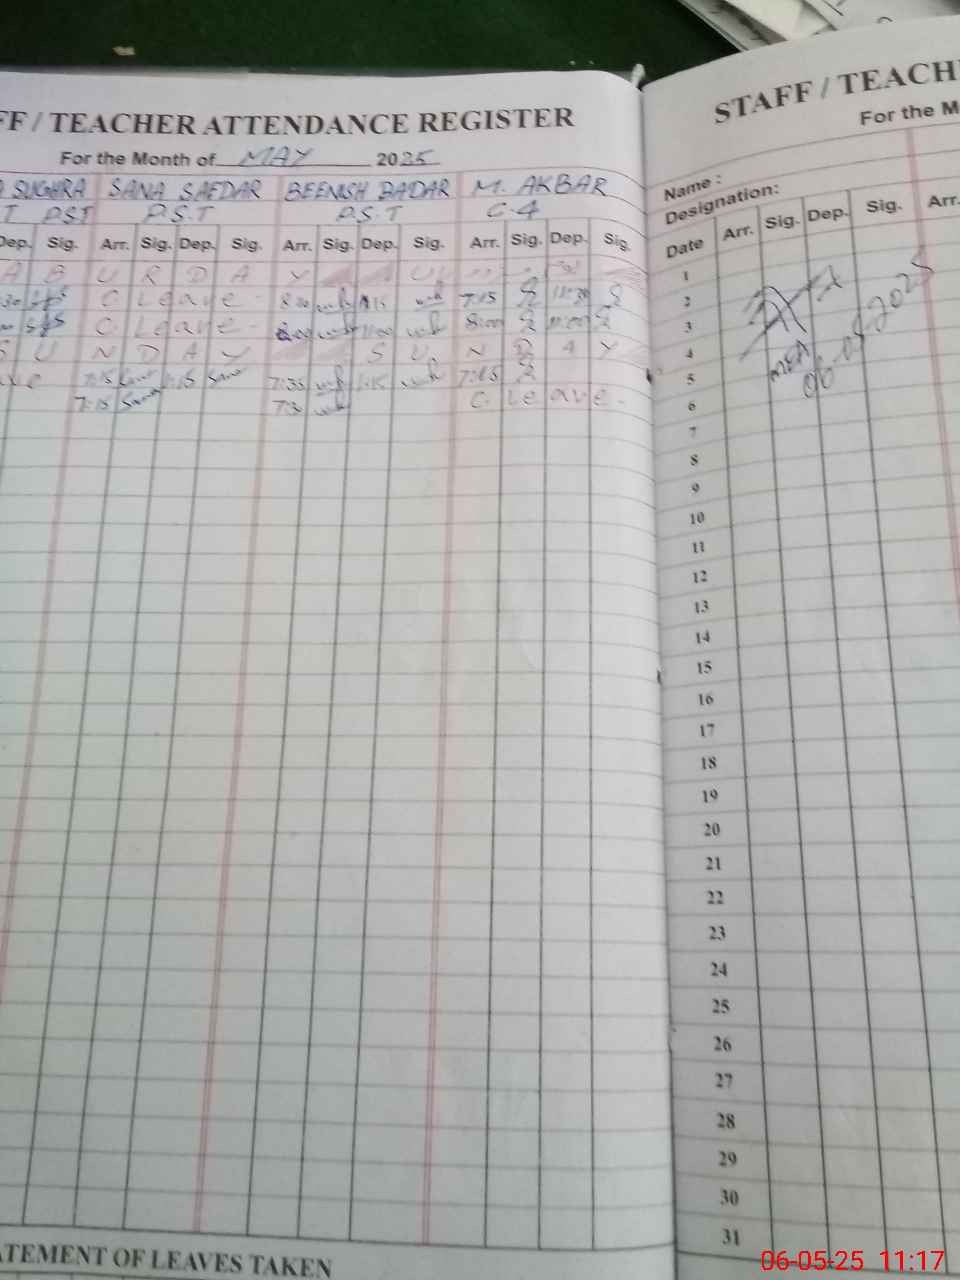 FF / TEACHER ATTENDANCE REGISTER
For the Month of MAY 2025
SUGHRA SANA SAFDAR BEENISH BADAR M. AKBAR
T PST P.S.T P.S.T C-4
Dep. Sig. Arr. Sig. Dep. Sig. Arr. Sig. Dep. Sig. Arr. Sig. Dep. Sig.
A B U R D A Y
C. Leave - 7:15
C. Leave - 8:00 11:00 8:00 11:00
S U N D A Y S U N D A Y
7:15 1:15 7:35 1:15 7:15
7:15 C. Leave -
ATEMENT OF LEAVES TAKEN
STAFF / TEACH
For the M
Name :
Designation:
Date Arr. Sig. Dep. Sig. Arr.
1
2
3
4
5
6
7
8
9
10
11
12
13
14
15
16
17
18
19
20
21
22
23
24
25
26
27
28
29
30
31
MEA
06-05-2025
06-05-25 11:17